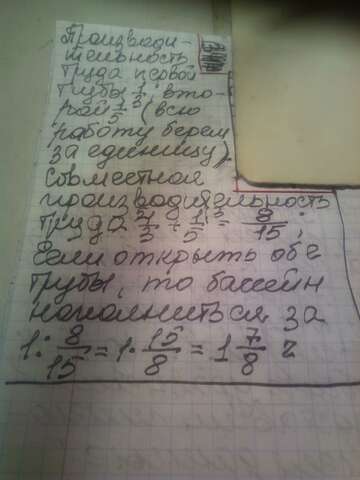 Производи-
тельность
труда первой
трубы 1/3; вто-
рой 1/5 (всю
работу берем
за единицу).
Совместная
производительность
труда 1/3 + 1/5 = 8/15;
Если открыть обе
трубы, то бассейн
наполниться за
1 : 8/15 = 1 · 15/8 = 1 7/8 г